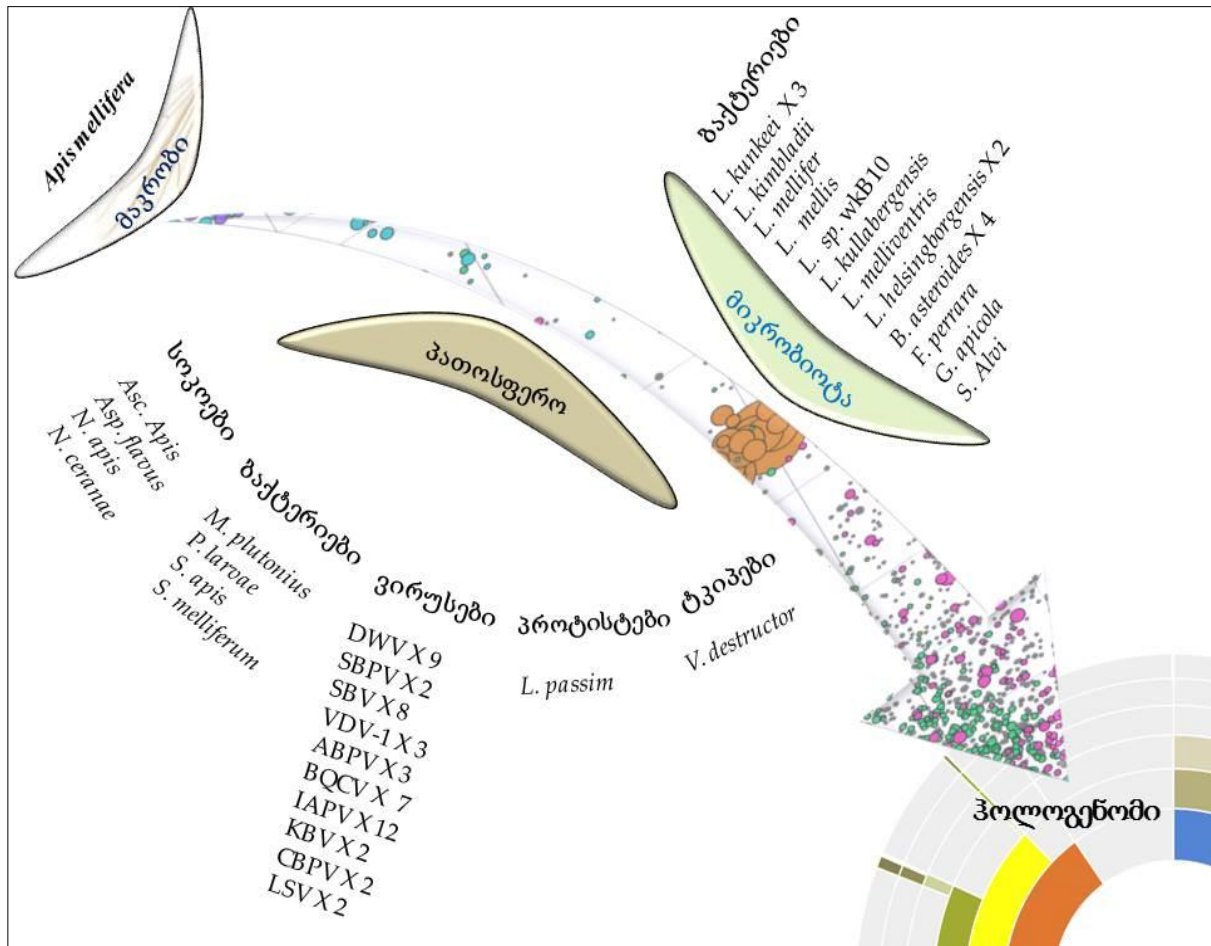 Apis mellifera
მაკრობი
ბაქტერიები
L. kunkeei X 3
L. kimbladii
L. mellifer
L. mellis
L. sp. wkB10
L. kullabergensis
L. melliventris
L. helsingborgensis X 2
B. asteroides X 4
F. perrara
G. apicola
S. Alvi
მიკრობიოტა
პათოსფერო
სოკოები
Asc. Apis
Asp. flavus
N. apis
N. ceranae
ბაქტერიები
M. plutonius
P. larvae
S. apis
S. melliferum
ვირუსები
DWV X 9
SBPV X 2
SBV X 8
VDV-1 X 3
ABPV X 3
BQCV X 7
IAPV X 12
KBV X 2
CBPV X 2
LSV X 2
პროტისტები
L. passim
ტკიპები
V. destructor
ჰოლოგენომი